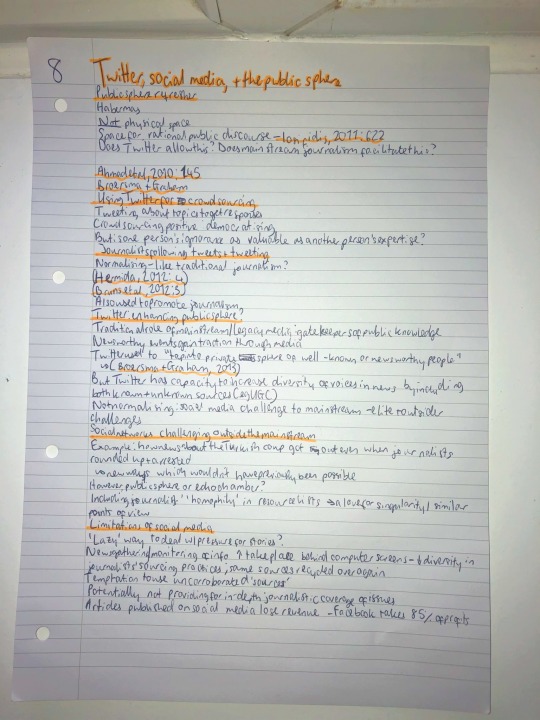 8
Twitter, social media, + the public sphere
Public sphere refresher
Habermas
Not physical space
Space for rational public discourse - Iosifidis, 2011: 622
Does Twitter allow this? Does mainstream journalism facilitate this?
Ahmad et al, 2010: 145
Broersma + Graham
Using Twitter for crowdsourcing
Tweeting about topics to get responses
Crowdsourcing positive democratising
But is one person's ignorance as valuable as another person's expertise?
Journalists following tweets + tweeting
Normalising - like traditional journalism?
(Hermida, 2012: 4)
(Bruns et al, 2012: 3)
Also used to promote journalism
Twitter: enhancing public sphere?
Traditional role of mainstream/legacy media: gatekeepers of public knowledge
Newsworthy events gain traction through media
Twitter used to "tap into private sphere of well-known or newsworthy people"
(Broersma + Graham, 2013)
But Twitter has capacity to increase diversity of voices in news by including
both known + unknown sources (eg UGC)
Not normalising: social media challenge to mainstream - elite outsider
challenges
Social networks challenging outside the mainstream
Example: how news about the Turkish coup got out even when journalists
rounded up + arrested
new ways which wouldn't have previously been possible
However, public sphere or echo chamber?
Including journalists' 'homophily' in resource lists → a love for singularity/similar
points of view
Limitations of social media
'Lazy' way to deal w/ pressure for stories?
Newsgathering/monitoring of info ↑ take place behind computer screens - ↓ diversity in
journalists' sourcing practices, same sources recycled over again
Temptation to use uncorroborated 'sources'
Potentially not providing for in-depth journalistic coverage of issues
Articles published on social media lose revenue - Facebook takes 85% of profits